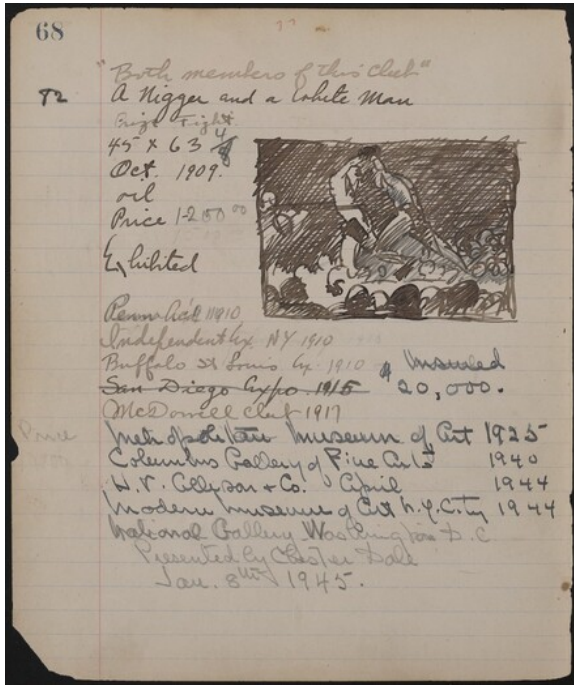 68
"Both members of this Club"
82
A Nigger and a White Man
Prize Fight
45 x 63 4/8
Oct. 1909.
oil
Price 1200 00
Exhibited
Penna Acd 1910
Independent Ex. NY 1910
Buffalo St Louis Ex 1910
San Diego Expo. 1915
McDowell Club 1917
Insured
$ 20,000.
Price
Metropolitan Museum of Art 1925
Columbus Gallery of Fine Arts 1940
H.V. Allison & Co. April 1944
Modern Museum of Art N.Y. City 1944
National Gallery Washington D.C
Presented by Chester Dale
Jan. 8th 1945.